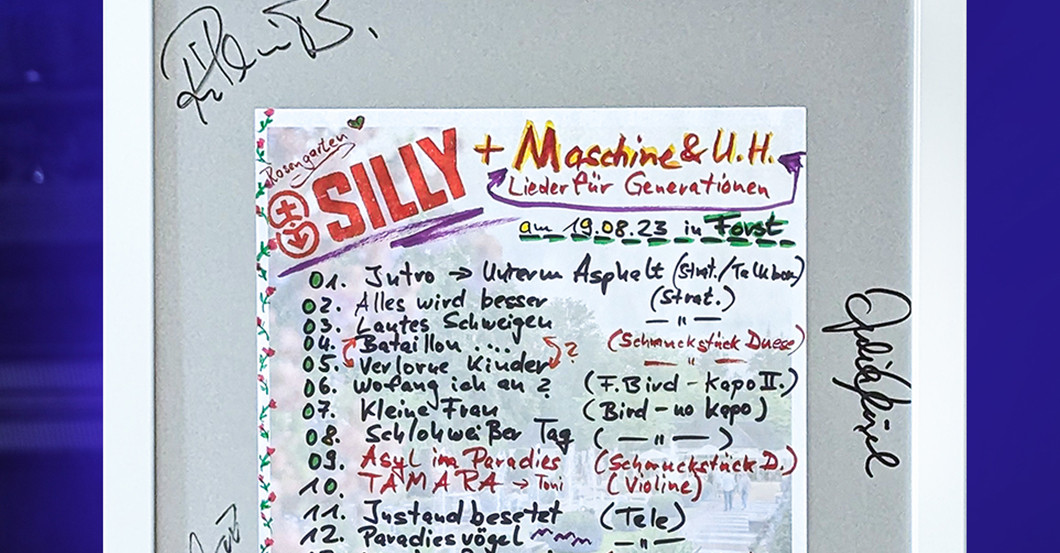 Rosengarten
SILLY + Maschine & U.H.
Lieder für Generationen
am 19.08.23 in Forst
01. Intro → Unterm Asphalt (Strat./Talkbox)
02. Alles wird besser (Strat.)
03. Lautes Schweigen — " —
04. Bataillon .... ? (Schmuckstück Duese)
05. Verlorne Kinder — " —
06. Wo fang ich an ? (F.Bird - Kapo II.)
07. Kleine Frau (Bird - no Kapo)
08. Schlohweißer Tag ( — " — )
09. Asyl im Paradies (Schmuckstück D.)
10. TAMARA → Toni (Violine)
11. Instand besetet (Tele)
12. Paradiesvögel — " —